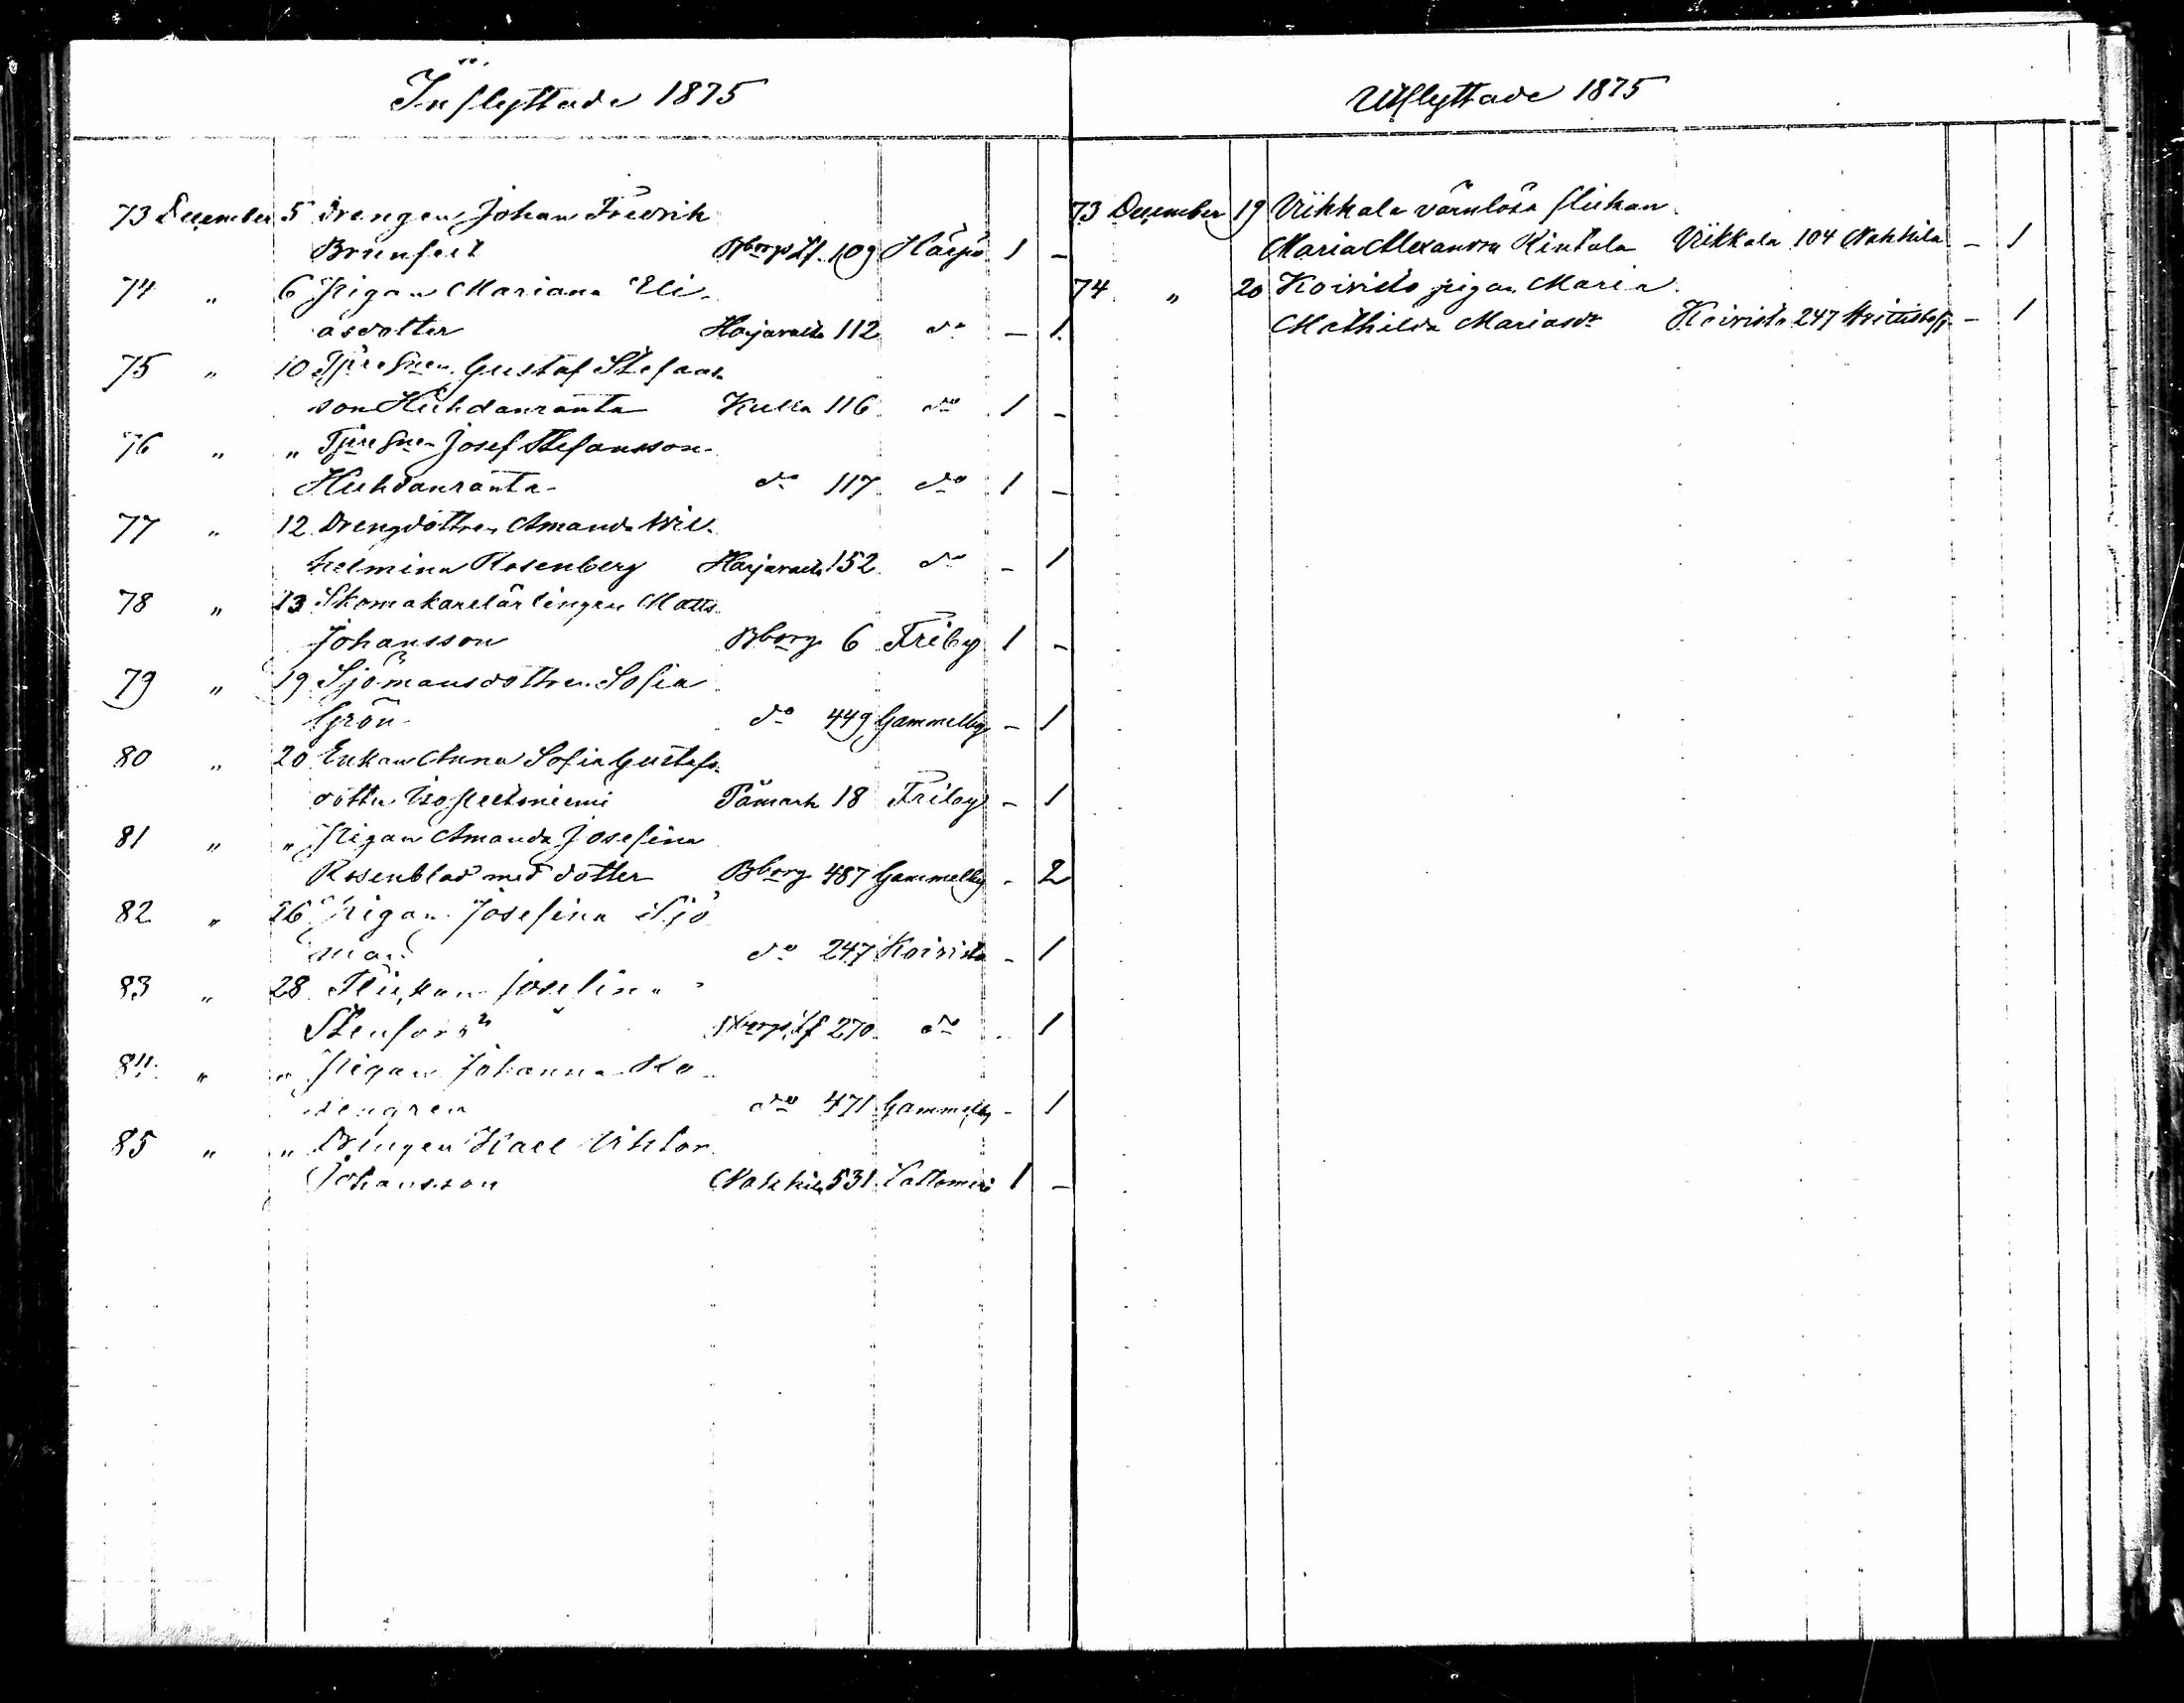 Inflyttade 1875
73 December 5 Drengen Johan Fredrik
109 1 -
74 " 6 Pigan Mariana Eli-
asdotter Harjavalta 112 do - 1
75 " 10 Gustaf Stefans-
son Huhdanranta Kulla 116 do 1 -
76 " " Josef Stefansson
Huhdanranta do 117 do 1 -
77 " 12 Drengdottren Amanda Wil-
helmina Rosenberg Harjavalta 152 do - 1
78 " 13 Skomakarelärlingen Matts
Johansson Bborg 6 Friby 1 -
79 " 19 Sjömansdottren Sofia
Grön do 449 Gammelby - 1
80 " 20 Enkan Anna Sofia Gustafs-
dotter Påmark 18 Friby - 1
81 " " Pigan Amanda Josefina
Rosenblad med dotter Bborg 487 Gammelby - 2
82 " 26 Pigan Josefina Sjö
man do 247 Koivisto - 1
83 " 28 Flickan Josefina
Stenfors 270 do - 1
84 " " Pigan Johanna Ro
sengren do 471 Gammelby - 1
85 " " Drengen Karl Viktor
Johansson Nakkila 531 Lattomeri 1 -
Utflyttade 1875
73 December 19 Viikkala värnlösa flickan
Maria Alexandra Rintala Viikkala 104 Nakkila - 1
74 " 20 Koivisto pigan Maria
Mathilda Mariasdr Koivisto 247 - 1